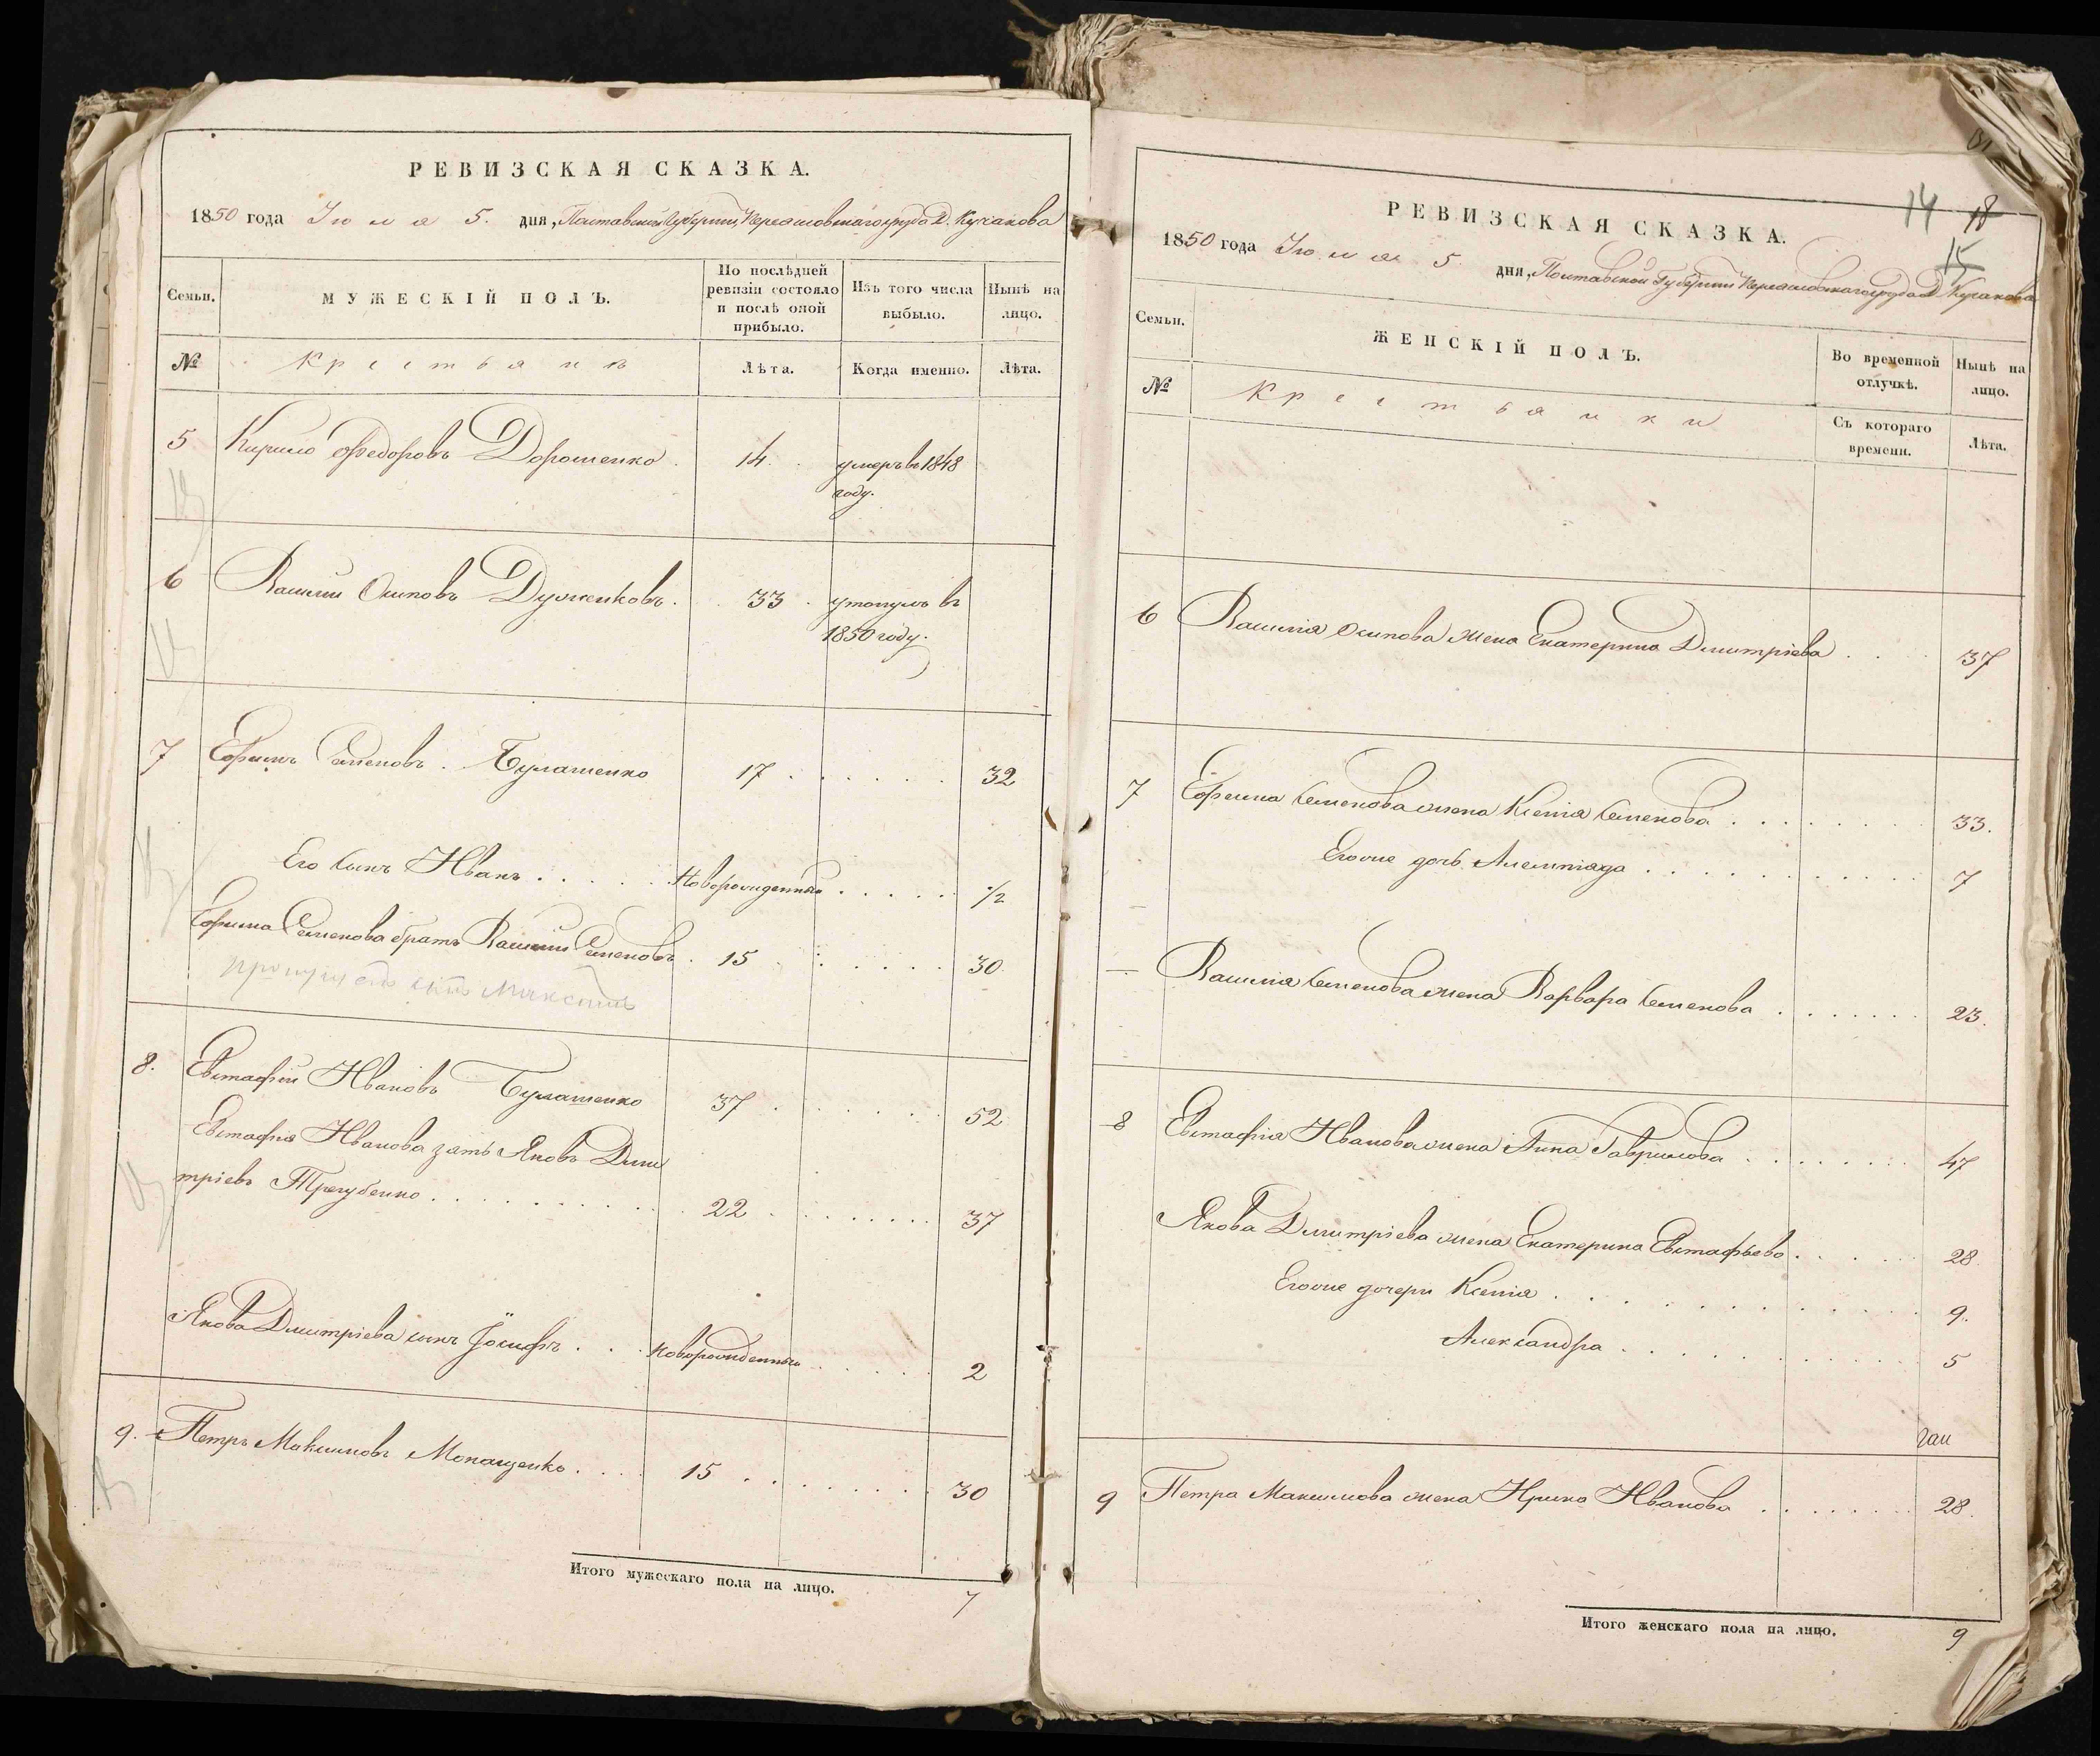 РЕВИЗСКАЯ СКАЗКА.
1850 года Іюля 5. дня, Полтавской Губерніи, Переяславскаго уезда Д. Кучакова
Семьи.
МУЖЕСКІЙ ПОЛЪ.
По послѣдней ревизіи состояло и послѣ оной прибыло.
Изъ того числа выбыло.
Нынѣ на лицо.
№
Крестьянъ
Лѣта.
Когда именно.
Лѣта.
5 Кирило Федоровъ Дорошенко. 14. умеръ въ 1848
году.
6 Василий Осиповъ 33. утонулъ въ
1850 году.
7 Ефимъ Семеновъ. Булашенко 17 32
Его сынъ Иванъ Новорожденный 1/2
Ефима Семенова братъ Василий Семеновъ. 15 30
сынъ Максимъ
8. Евстафій Ивановъ Булашенко 37 52
Евстафія Иванова зять Яковъ Дми
тріевъ Трегубенко 22 37
Якова Дмитріева сынъ Іосифъ новорожденный 2
9. Петръ Максимовъ 15 30
Итого мужескаго пола на лицо. 7
14 18
15
РЕВИЗСКАЯ СКАЗКА.
1850 года Іюля 5 дня, Полтавской Губерніи Переяславскаго уезда Д Кучакова
Семьи.
ЖЕНСКІЙ ПОЛЪ.
Во временной отлучкѣ.
Нынѣ на лицо.
№
Крестьянки
Съ котораго времени.
Лѣта.
6 Василія Осипова жена Екатерина Дмитріева 37
7 Ефима Семенова жена Ксенія Семенова 33.
Егоже дочь 7
Василія Семенова жена Варвара Семенова 23.
8 Евстафія Иванова жена Анна Гаврилова 47
Якова Дмитріева жена Екатерина Евстафьева 28
Егоже дочери Ксенія 9.
Александра 5
9 Петра Максимова жена Ирина Иванова 28.
Итого женскаго пола на лицо. 9